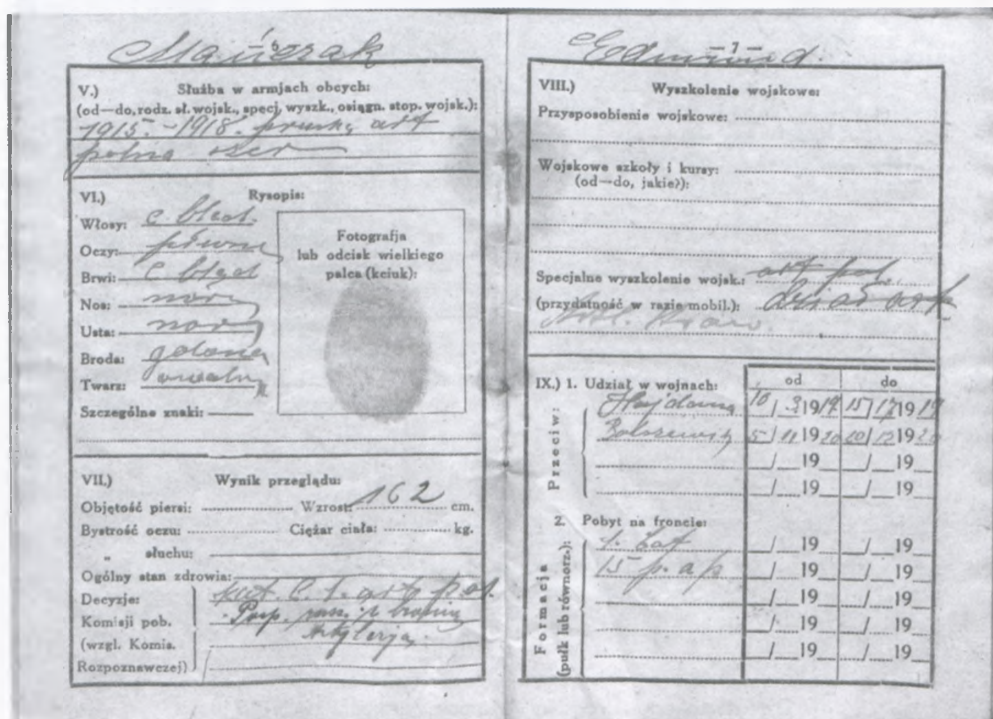 Mańczak
6
V.) Służba w armjach obcych:
(od—do, rodz. sł. wojsk., specj. wyszk., osiągn. stop. wojsk.):
1915.-1918. pruska art
polna szer
VI.) Rysopis:
Włosy: c. blond.
Oczy: piwne
Brwi: c. blond
Nos: norm
Usta: norm
Broda: golona
Twarz: owalna
Szczególne znaki: —
Fotografja
lub odcisk wielkiego
palca (kciuk):
VII.) Wynik przeglądu:
Objętość piersi: Wzrost: 162 cm.
Bystrość oczu: Ciężar ciała: kg.
" słuchu:
Ogólny stan zdrowia:
Decyzje: kat. C. 1. art. pol.
Komisji pob. Posp. rusz. z bronią
(wzgl. Komis. Artylerja.
Rozpoznawczej)
Edmund.
— 7 —
VIII.) Wyszkolenie wojskowe:
Przysposobienie wojskowe:
Wojskowe szkoły i kursy:
(od—do, jakie?):
Specjalne wyszkolenie wojsk.: art. pol.
(przydatność w razie mobil.):
IX.) 1. Udział w wojnach:
od do
Przeciw:
10/ 3 1919 15/ 17 1919
Bolszewicy 5/ 11 1920 20/ 12 1920
/ 19 / 19
/ 19 / 19
2. Pobyt na froncie:
Formacja
(pułk lub równorz.):
/ 19 / 19
15 p. a p. / 19 / 19
/ 19 / 19
/ 19 / 19
/ 19 / 19